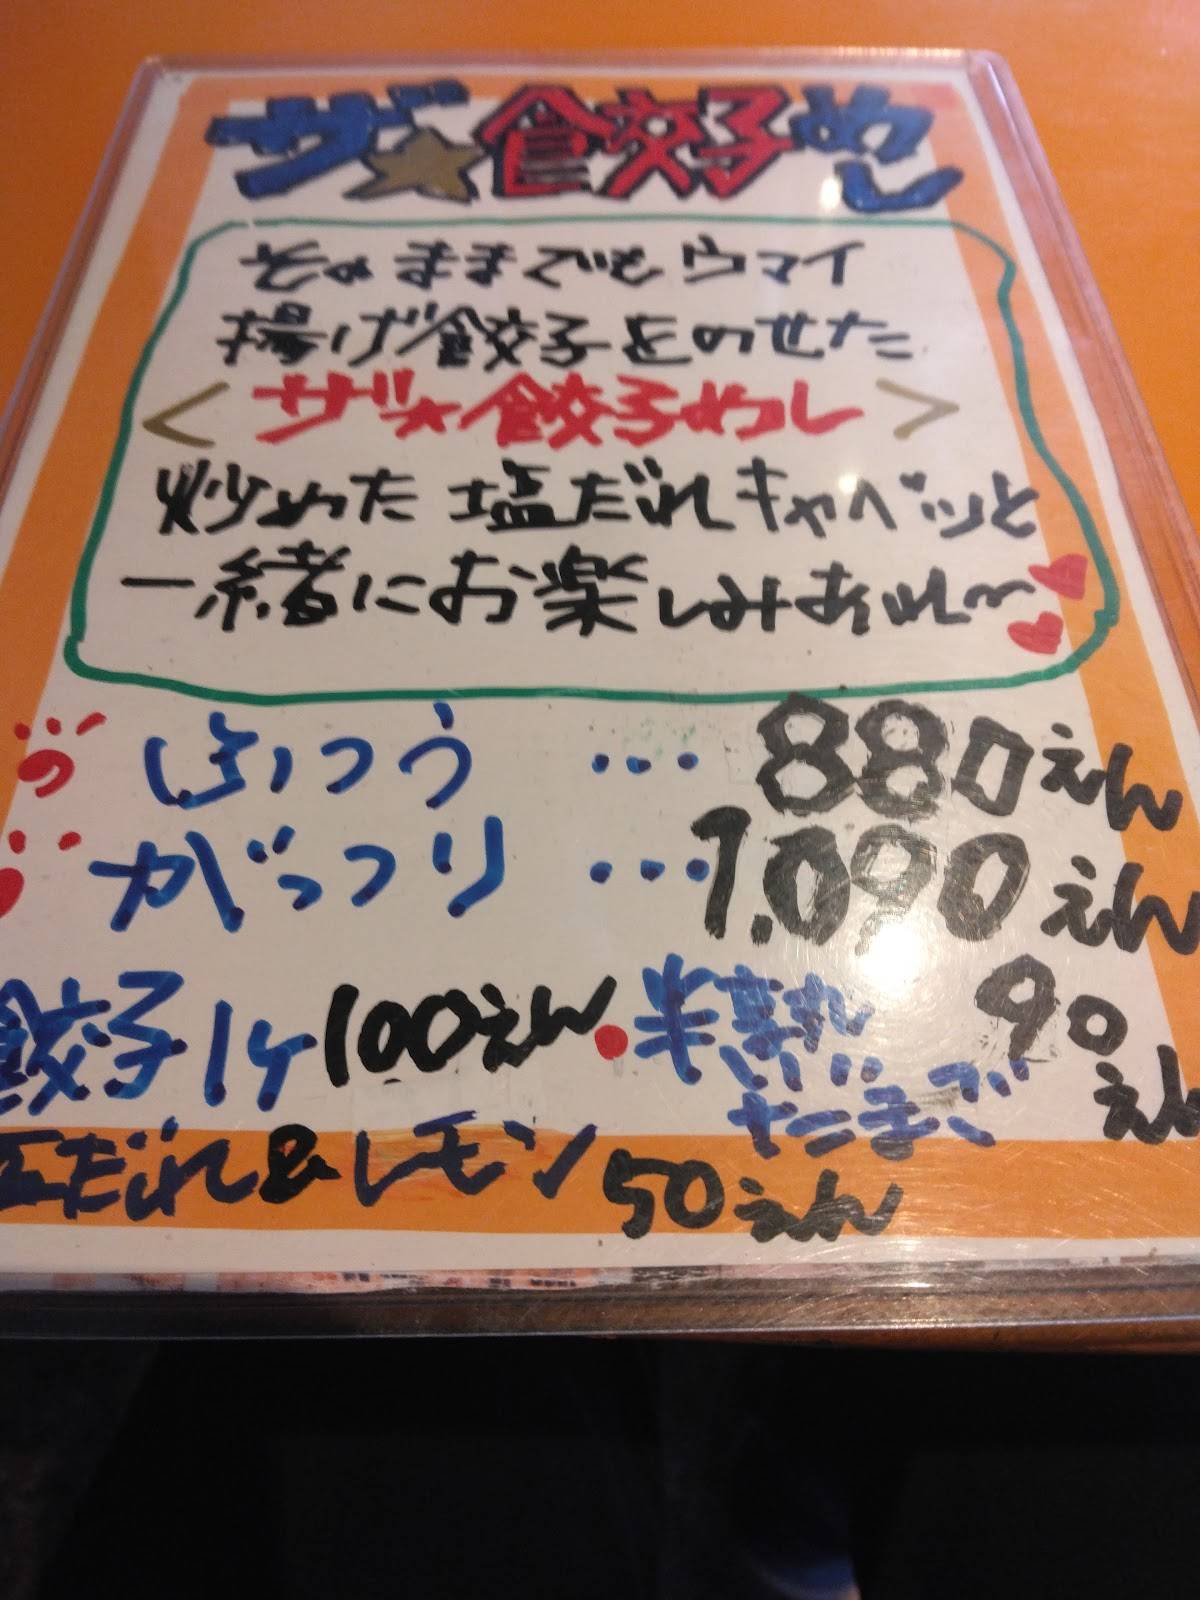 ザ★餃子めし
そのままでもウマイ
揚げ餃子をのせた
<ザ★餃子めし>
炒めた塩だれキャベツと
一緒にお楽しみあれ〜
ふつう …880えん
がっつり …1.090えん
餃子1ケ100えん
半熟たまご 90えん
だれ&レモン 50えん